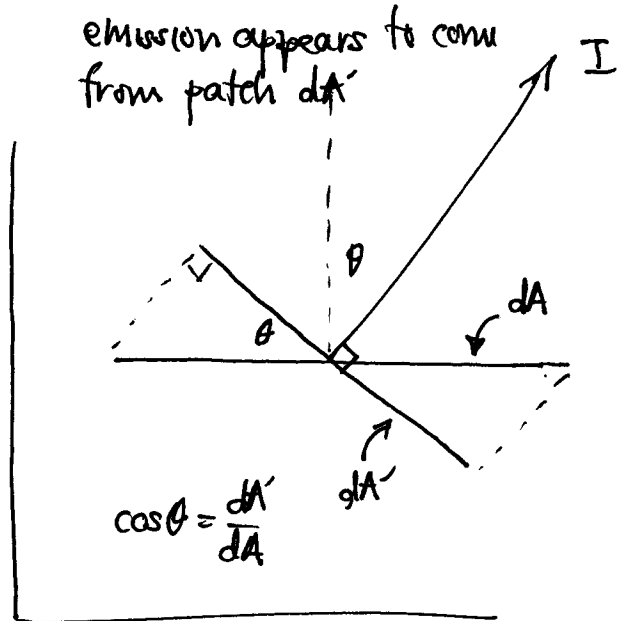 emission appears to come
from patch dA′
I
θ
dA
θ
dA′
cosθ = dA′/dA